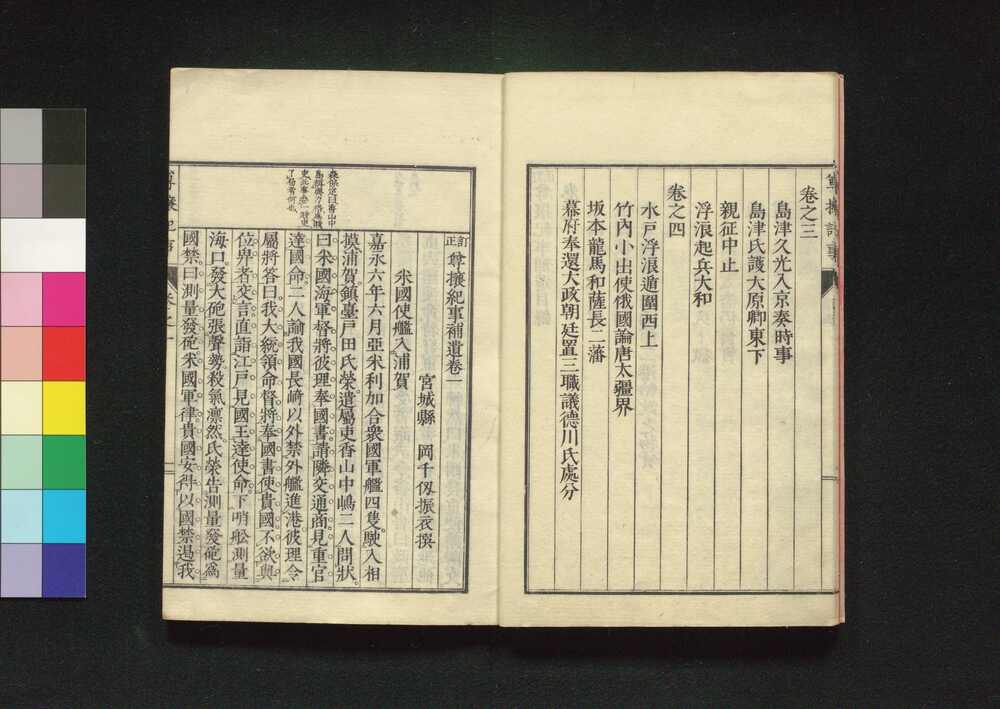 卷之三
島津久光入京奏時事
島津氏護大原卿東下
親征中止
浮浪起兵大和
卷之四
水戸浮浪遁圍西上
竹內小出使俄國論唐太疆界
坂本龍馬和薩長二藩
幕府奉還大政朝廷置三職議德川氏處分
訂正尊攘紀事補遺卷一
宮城縣 岡千仭振衣撰
米國使艦入浦賀
嘉永六年六月亞米利加合衆國軍艦四隻駛入相
摸浦賀鎮臺戸田氏榮遣屬吏香山中嶋二人問狀
曰米國海軍督將彼理奉國書請隣交通商見重官
達國命二人諭我國長崎以外禁外艦進港彼理令
屬將答曰我大統領命督將奉國書使貴國不欲與
位卑者交言直詣江戸見國王達使命下哨舩測量
海口發大砲張聲勢殺氣凛然氏榮告測量發砲爲
國禁曰測量發砲米國軍律貴國安得以國禁遏我